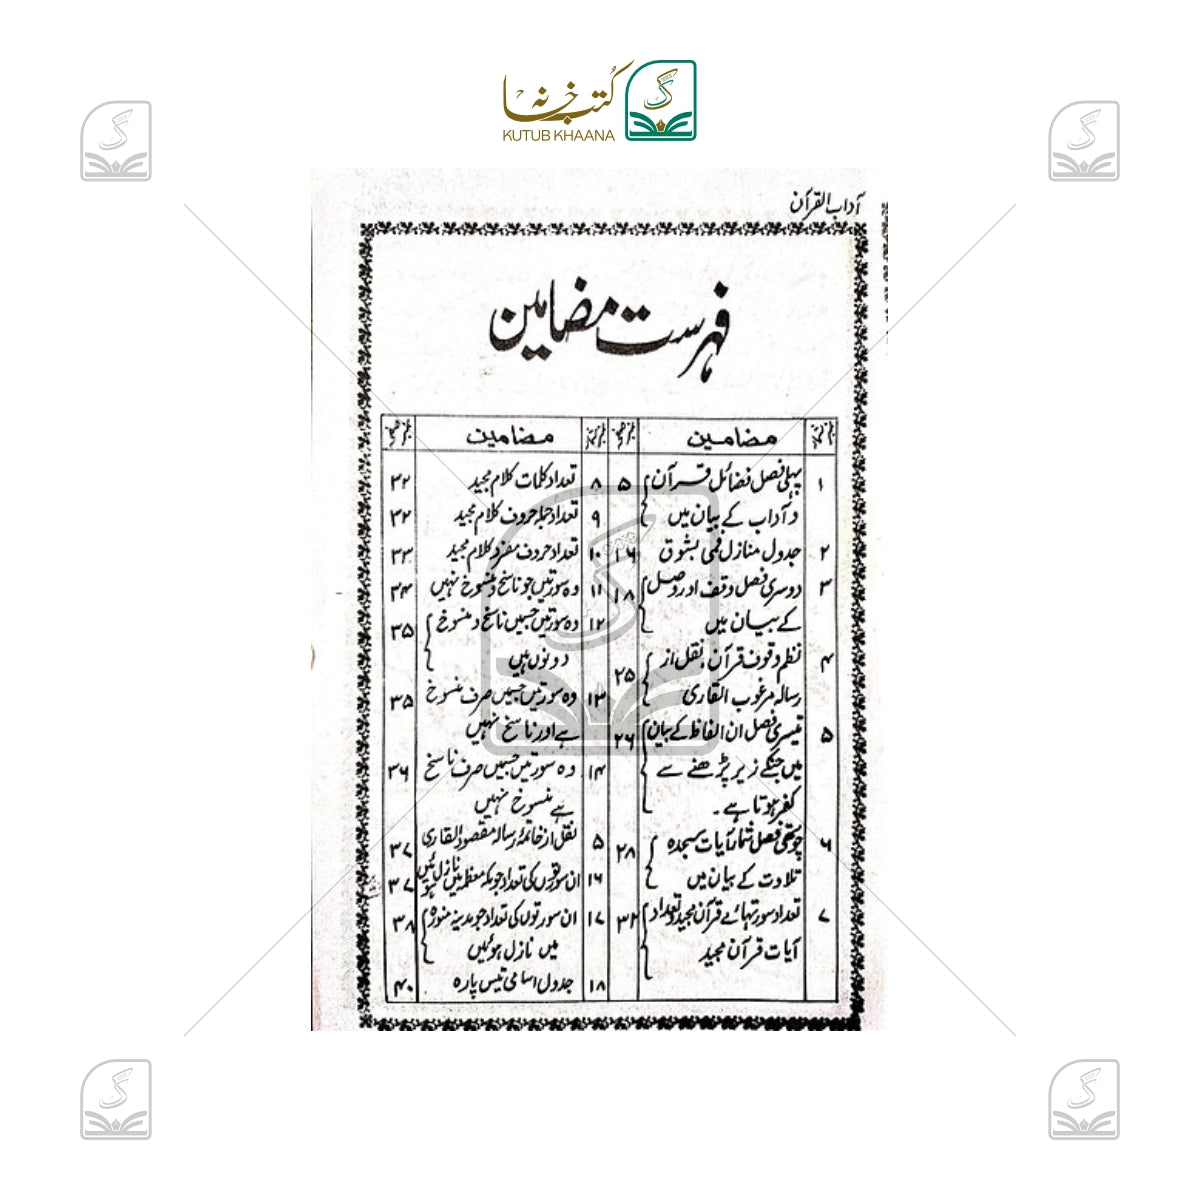 کتب خانہ
KUTUB KHAANA
آداب القرآن
فہرست مضامین
نمبر شمار مضامین نمبر صفحہ
۱ پہلی فصل فضائل قرآن ۵
و آداب کے بیان میں
۲ جدول منازل فمی بشوق ۱۶
۳ دوسری فصل وقف اور وصل ۱۸
کے بیان میں
۴ نظم وقوف قرآن، نقل از ۲۵
رسالہ مرغوب القاری
۵ تیسری فصل ان الفاظ کے بیان ۲۶
میں جنکے زیر پڑھنے سے
کفر ہوتا ہے۔
۶ چوتھی فصل شمار آیات سجدہ ۲۸
تلاوت کے بیان میں
۷ تعداد سورتہائے قرآن مجید و تعداد ۳۲
آیات قرآن مجید
نمبر شمار مضامین نمبر صفحہ
۸ تعداد کلمات کلام مجید ۳۲
۹ تعداد جملہ حروف کلام مجید ۳۲
۱۰ تعداد حروف مفرد کلام مجید ۳۳
۱۱ وہ سورتیں جو ناسخ و منسوخ نہیں ۳۴
۱۲ وہ سورتیں جسمیں ناسخ و منسوخ ۳۵
دونوں ہیں
۱۳ وہ سورتیں جسمیں صرف منسوخ ۳۵
ہے اور ناسخ نہیں
۱۴ وہ سورتیں جسمیں صرف ناسخ ۳۶
ہے منسوخ نہیں
۵ نقل از خاتمہ رسالہ مقصود القاری ۳۷
۱۶ ان سورتوں کی تعداد جو مکہ معظمہ میں نازل ہوئیں ۳۷
۱۷ ان سورتوں کی تعداد جو مدینہ منورہ ۳۸
میں نازل ہوئیں
۱۸ جدول اسامی تیس پارہ ۴۰